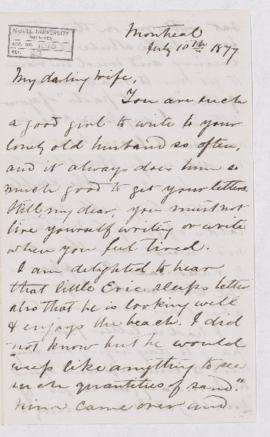 McGILL UNIVERSITY
ACC. NO.
REF.
Montreal
July 10th 1877
My darling Wife,
You are such
a good girl to write to your
lonely old husband so often,
and it always does him so
much good to get your letters
Still my dear, you must not
tire yourself writing or write
when you feel tired.
I am delighted to hear
that little Eric sleeps better
also that he is looking well
& enjoys the beach. I did
not know but he would
"weep like anything to see
such quantities of sand."
came over and